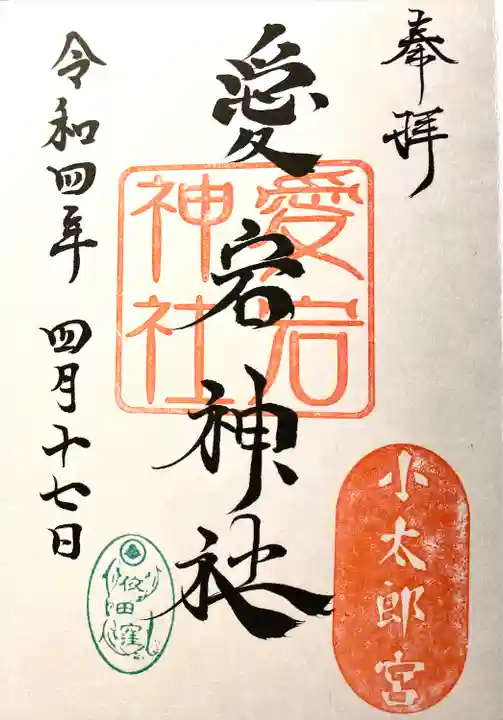 奉拝
小太郎宮
愛宕神社
愛宕
神社
令和四年 四月十七日
依田窪